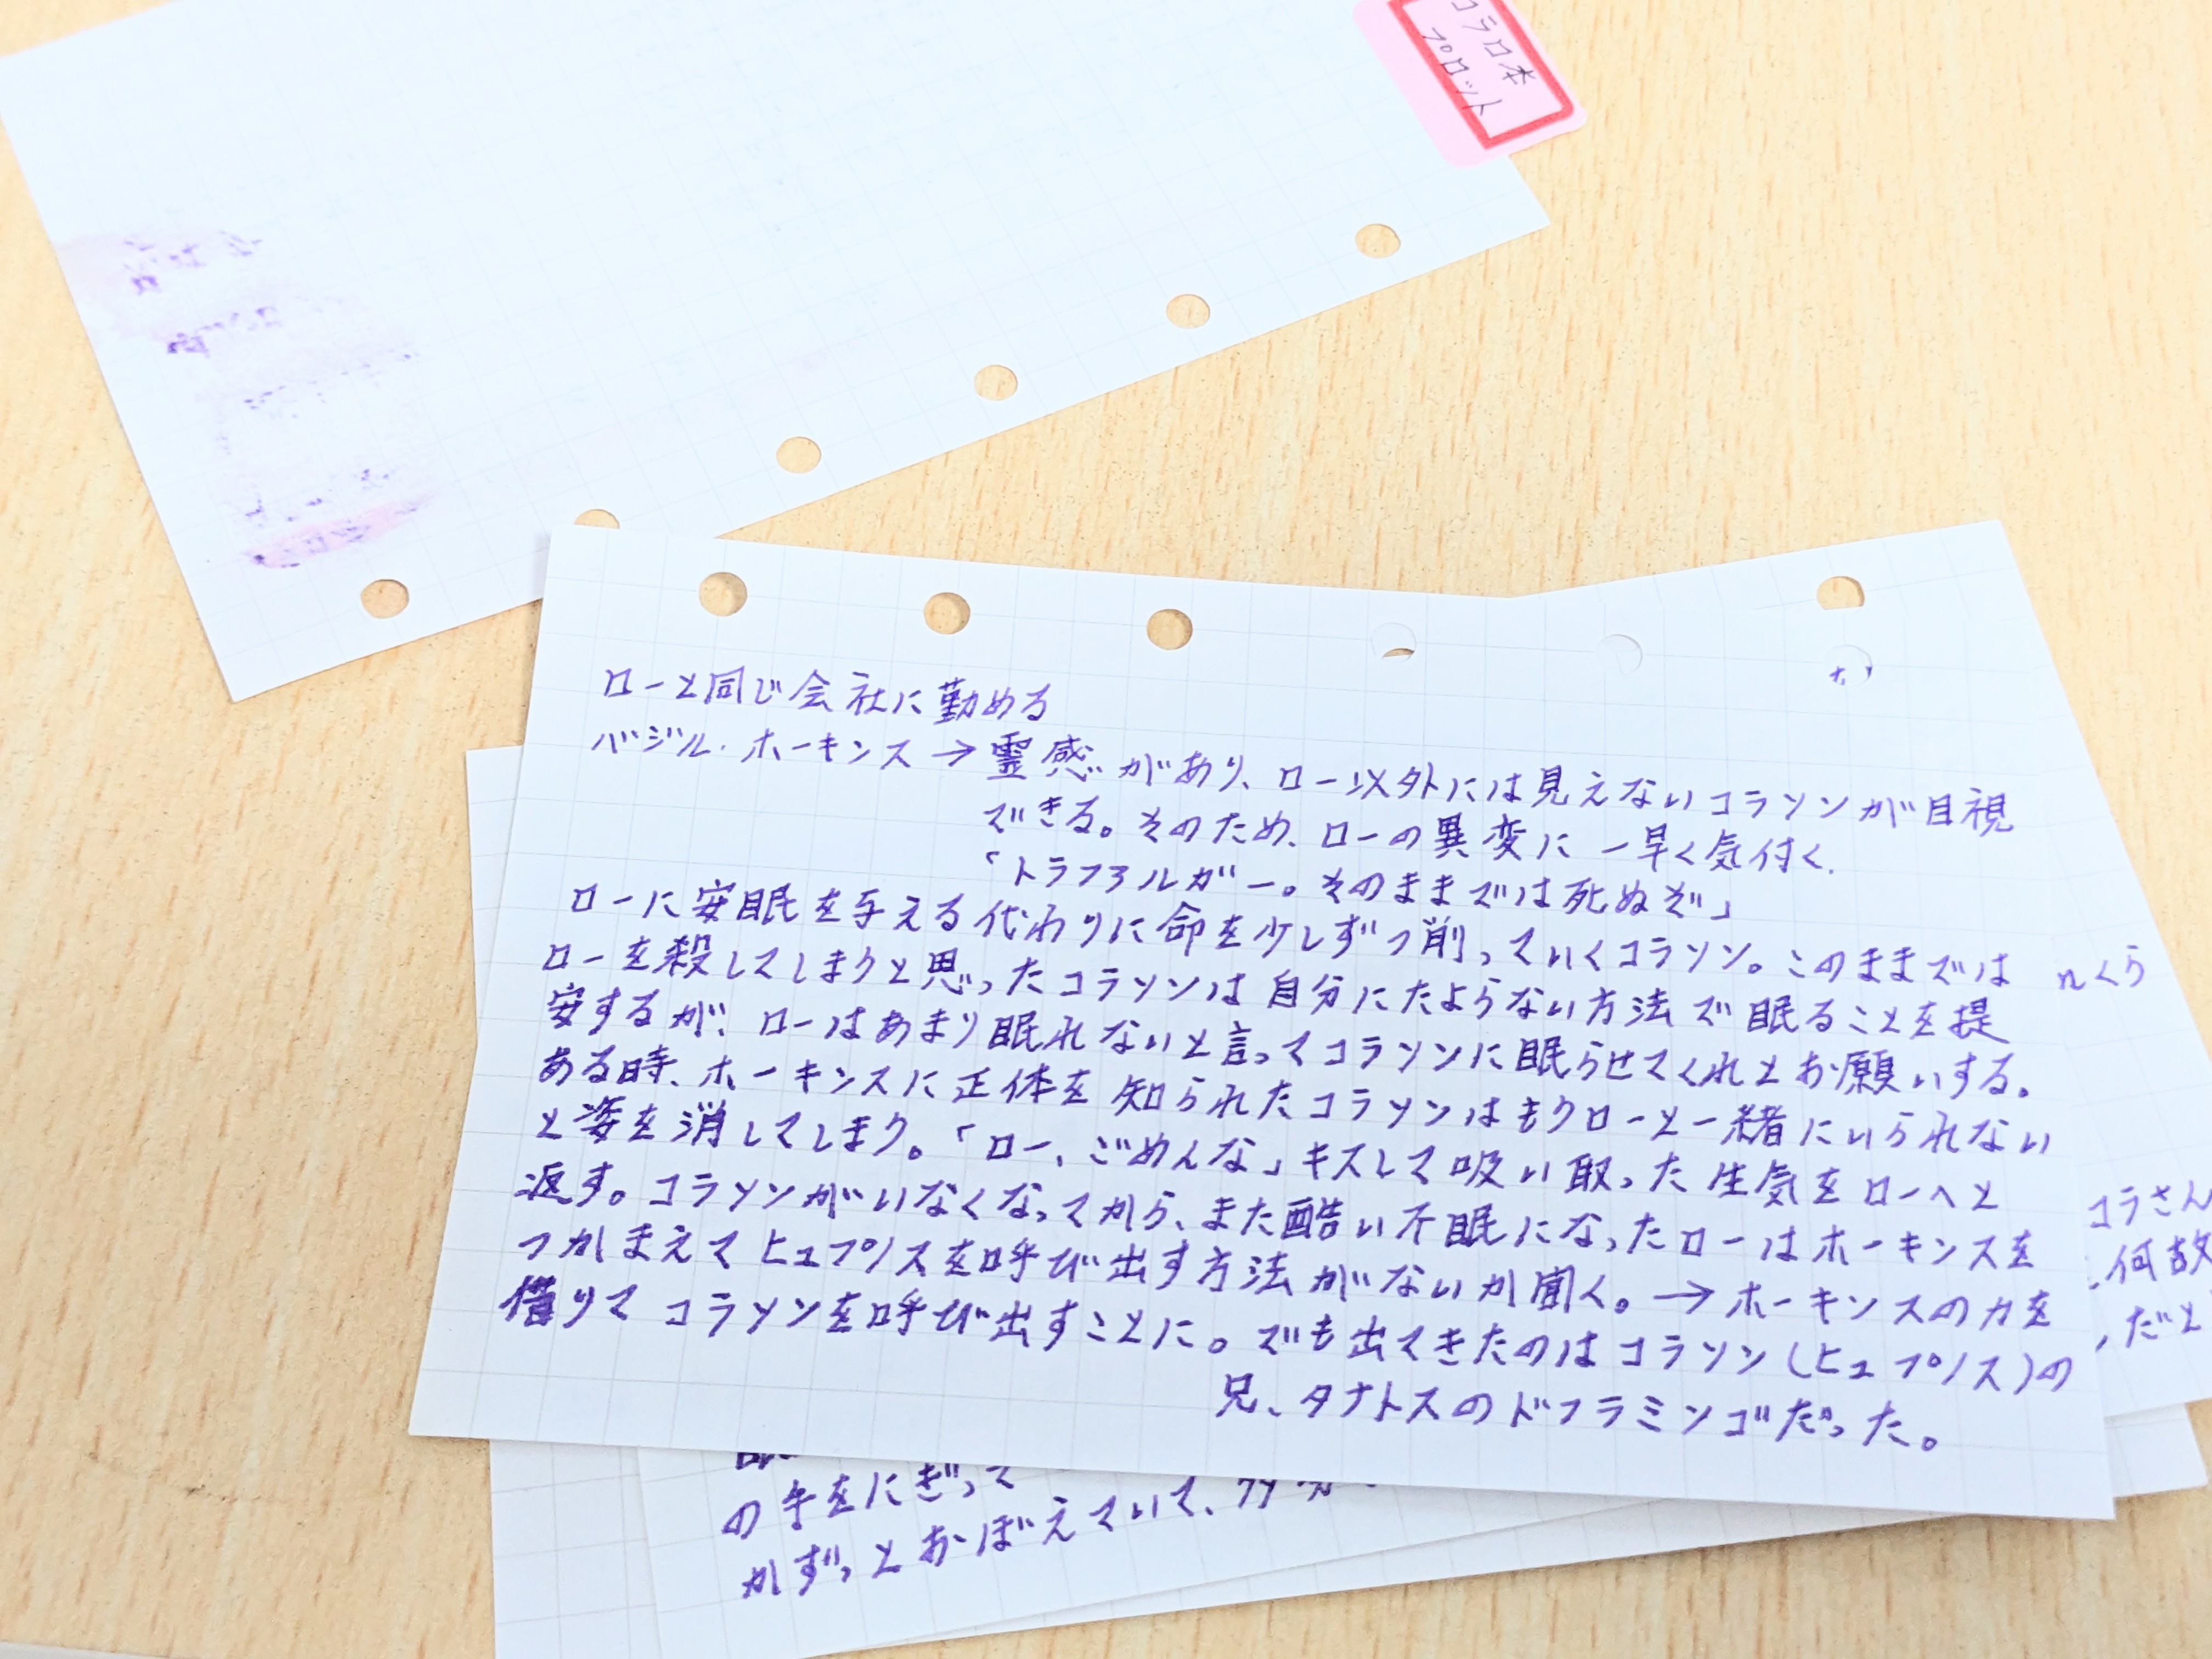 コラロ本
プロット
ローと同じ会社に勤める
バジル・ホーキンス→霊感があり、ロー以外には見えないコラソンが目視
できる。そのため、ローの異変に一早く気付く。
「トラファルガー。そのままでは死ぬぞ」
ローに安眠を与える代わりに命を少しずつ削っていくコラソン。このままでは
ローを殺してしまうと思ったコラソンは自分にたよらない方法で眠ることを提
案するが、ローはあまり眠れないと言ってコラソンに眠らせてくれとお願いする。
ある時、ホーキンスに正体を知られたコラソンはもうローと一緒にいられない
と姿を消してしまう。「ロー、ごめんな」キスして吸い取った生気をローへと
返す。コラソンがいなくなってから、また酷い不眠になったローはホーキンスを
つかまえてヒュプノスを呼び出す方法がないか聞く。→ホーキンスの力を
借りてコラソンを呼び出すことに。でも出てきたのはコラソン(ヒュプノス)の
兄、タナトスのドフラミンゴだった。
コラさん
何故
だと
の手をにぎって
かずっとおぼえていて、